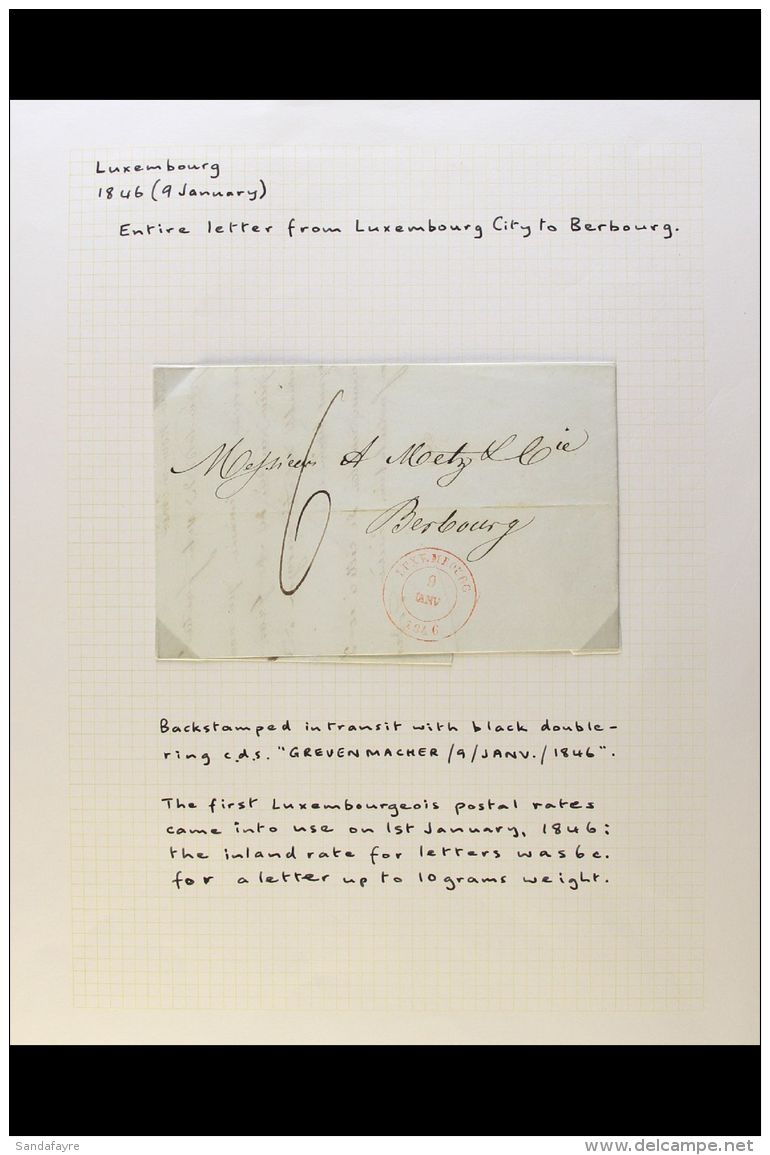 Luxembourg
1846 (9 January)
Entire letter from Luxembourg City to Berbourg.
6
Messieurs A Metz & Cie
Berbourg
LUXEMBOURG
9
JANV
1846
Backstamped in transit with black double-
ring c.d.s. "GREVENMACHER/9/JANV./1846".
The first Luxembourgeois postal rates
came into use on 1st January, 1846:
the inland rate for letters was 6c.
for a letter up to 10 grams weight.
Sandafayre
www.delcampe.net